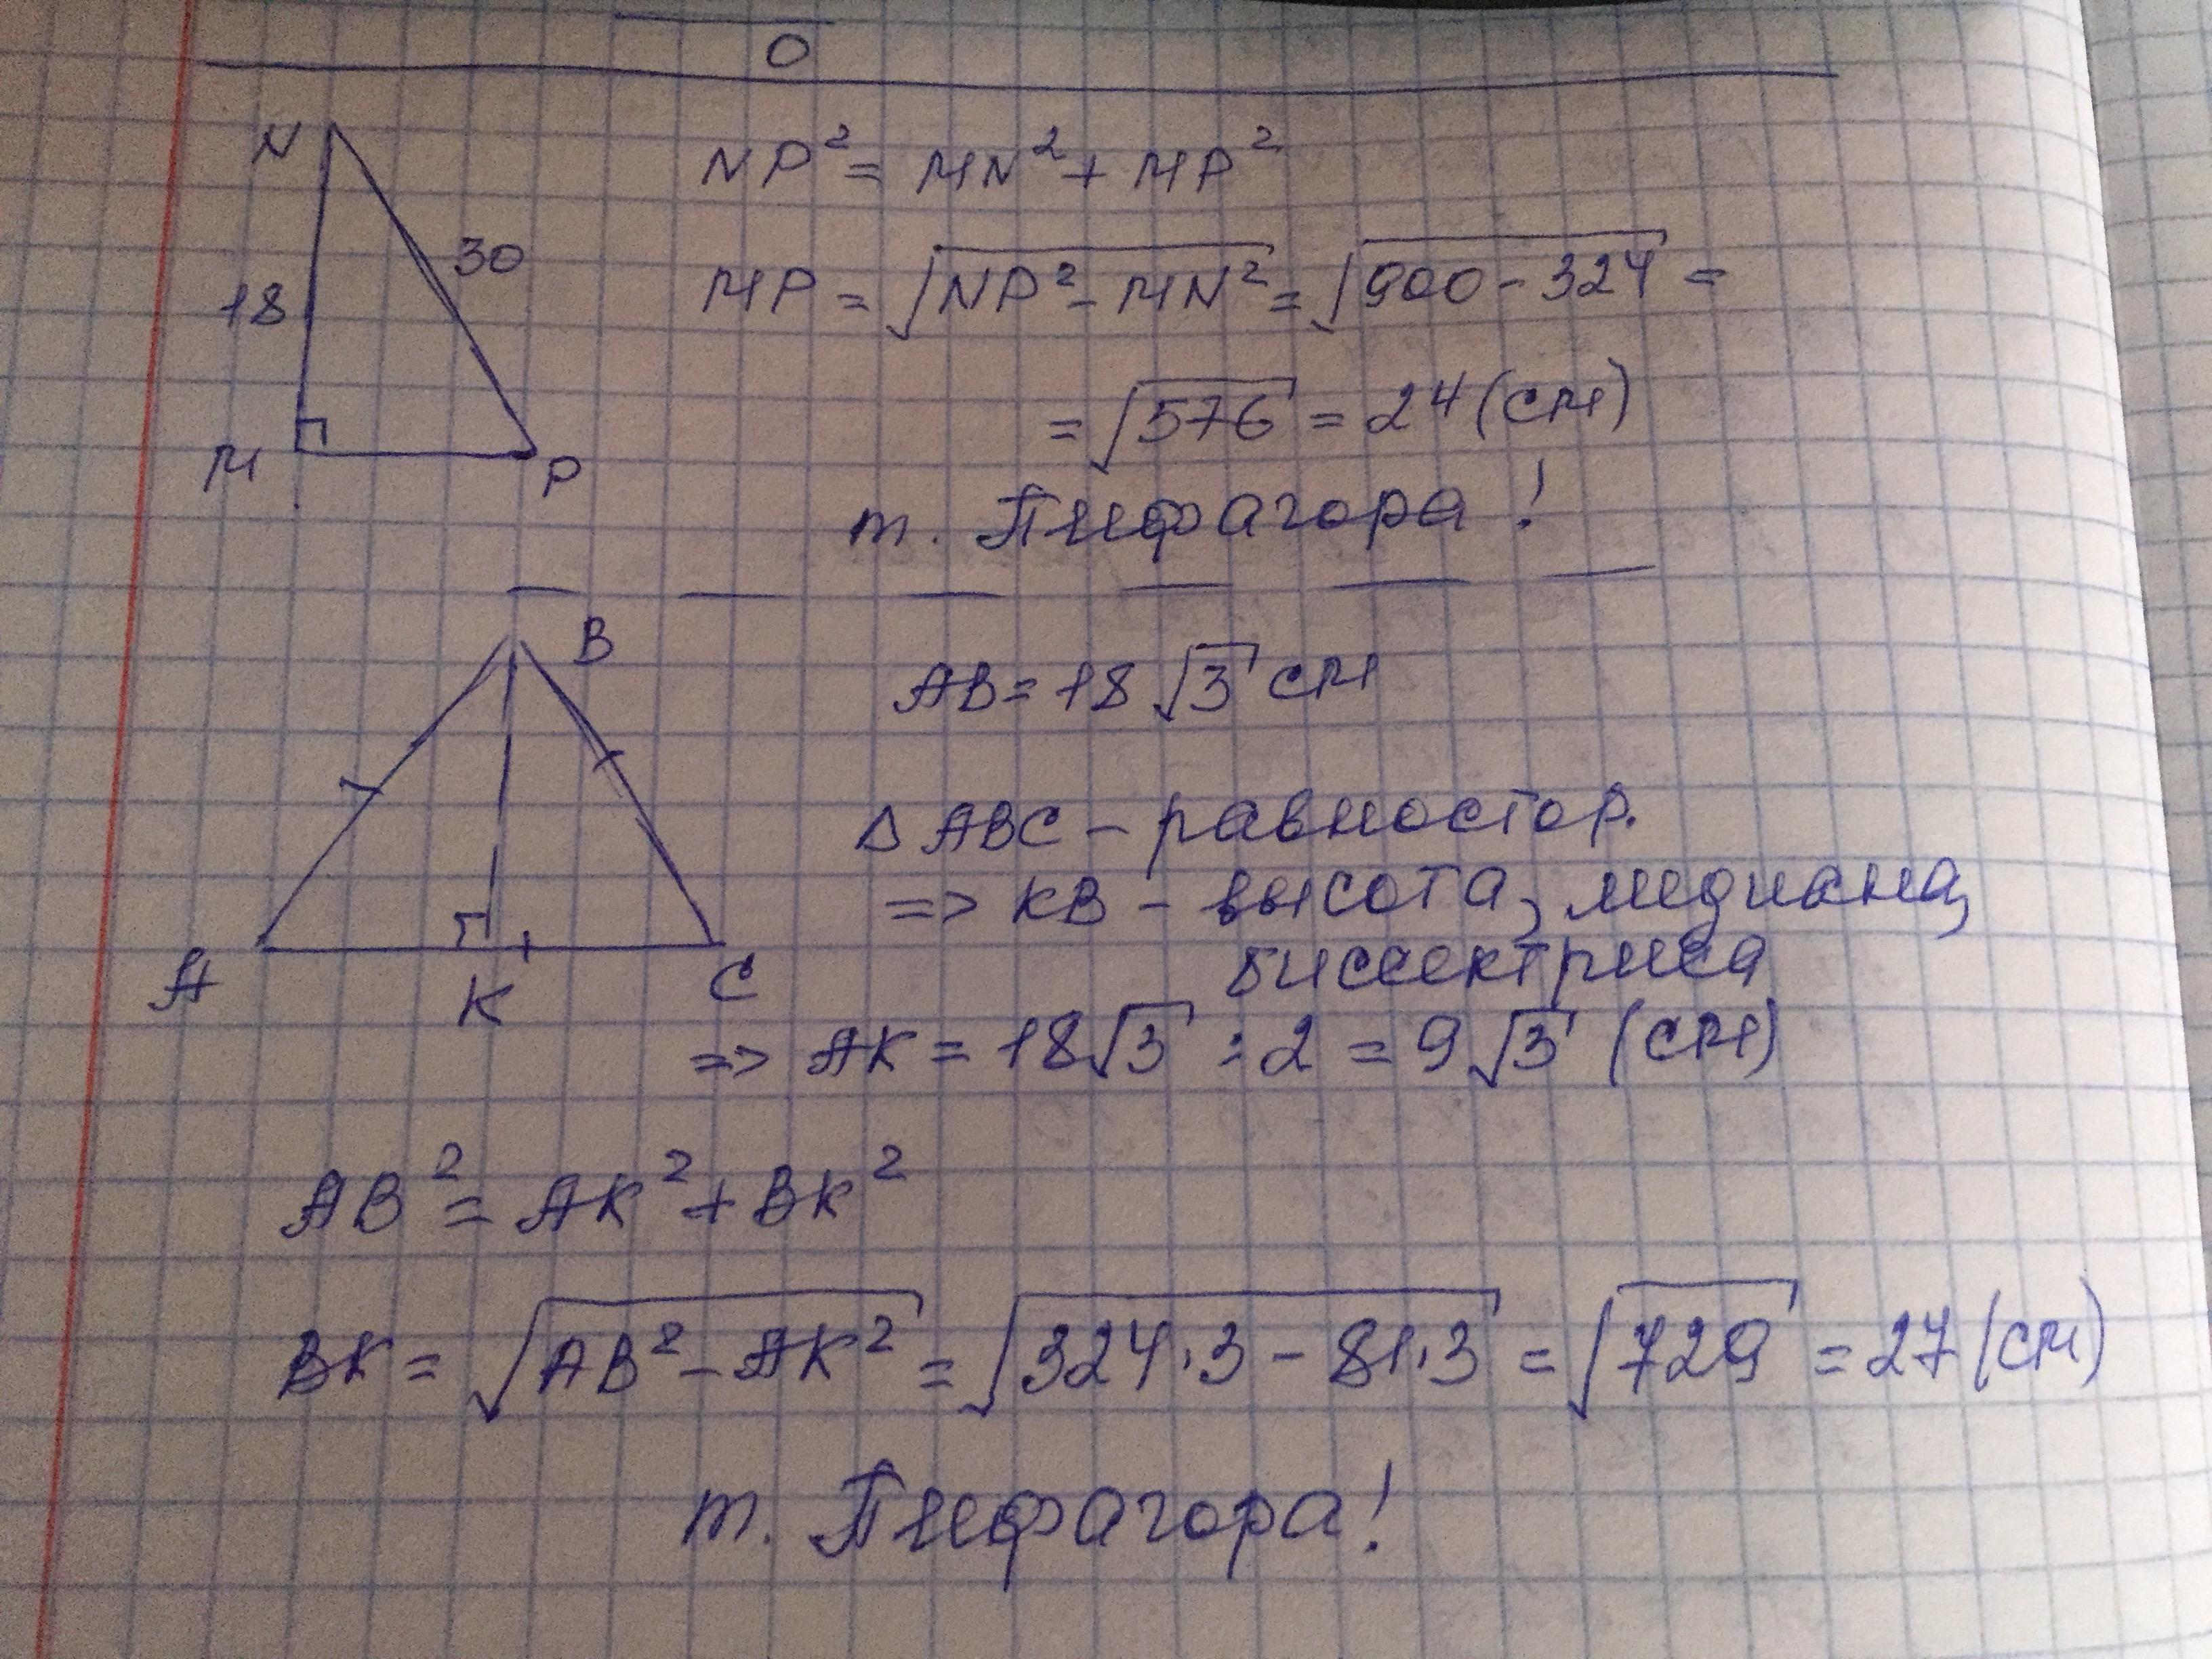 O
N
NP² = MN² + MP²
30
18
MP = √NP² - MN² = √900 - 324 =
= √576 = 24 (см)
M
P
т. Пифагора!
B
AB = 18√3 см
△ABC - равностор.
=> KB - высота, медиана,
биссектриса
A
K
C
=> AK = 18√3 : 2 = 9√3 (см)
AB² = AK² + BK²
BK = √AB² - AK² = √324·3 - 81·3 = √729 = 27 (см)
т. Пифагора!